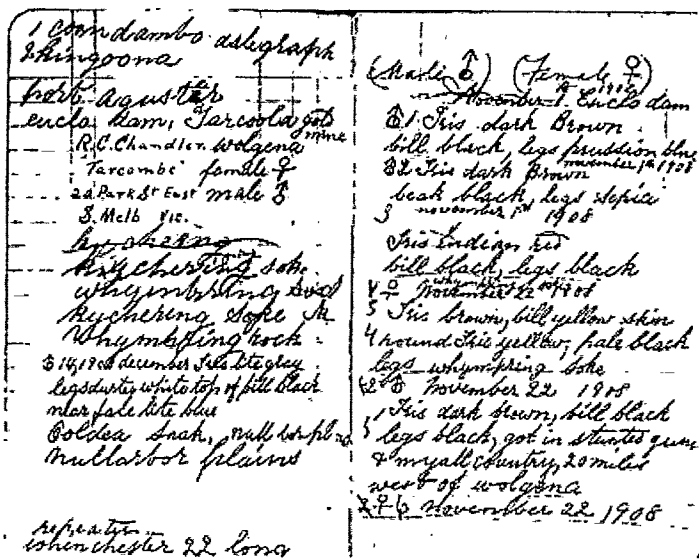 1 coondambo dalegraph
2 kingoona
port agusta
eucla dam, Tarcoola got
mine
R.C. Chandler. wolgena
Tarcombe female ♀
22 Park St East male ♂
S. Melb Vic.
kychering
kychering soke
whymbring
kychering soke
whympring rock
♂ 14, 1908 december Iris lite grey
legs durter white top of bill black
near fale lite blue
Ooldea Soak, nullarbor plans
nullarbor plains
repeater
whinchester 22 long
(Male ♂) (Female ♀)
1908
November 1st Eucla dam
♂ 1 Iris dark Brown
bill black, legs prussion blue
november 1st 1908
♂ 2 Iris dark Brown
beak black, legs sepia
3 november 1st 1908
Iris Indian red
bill black, legs black
4 ♀ November 22 1908
5 Iris brown, bill yellow skin
4 round Iris yellow, pale black
legs whympring soke
2 ♂ November 22 1908
1 Iris dark brown, bill black
5 legs black, got in stunted gum
& myall country, 20 miles
west of wolgena
2 ♀ 6 November 22 1908